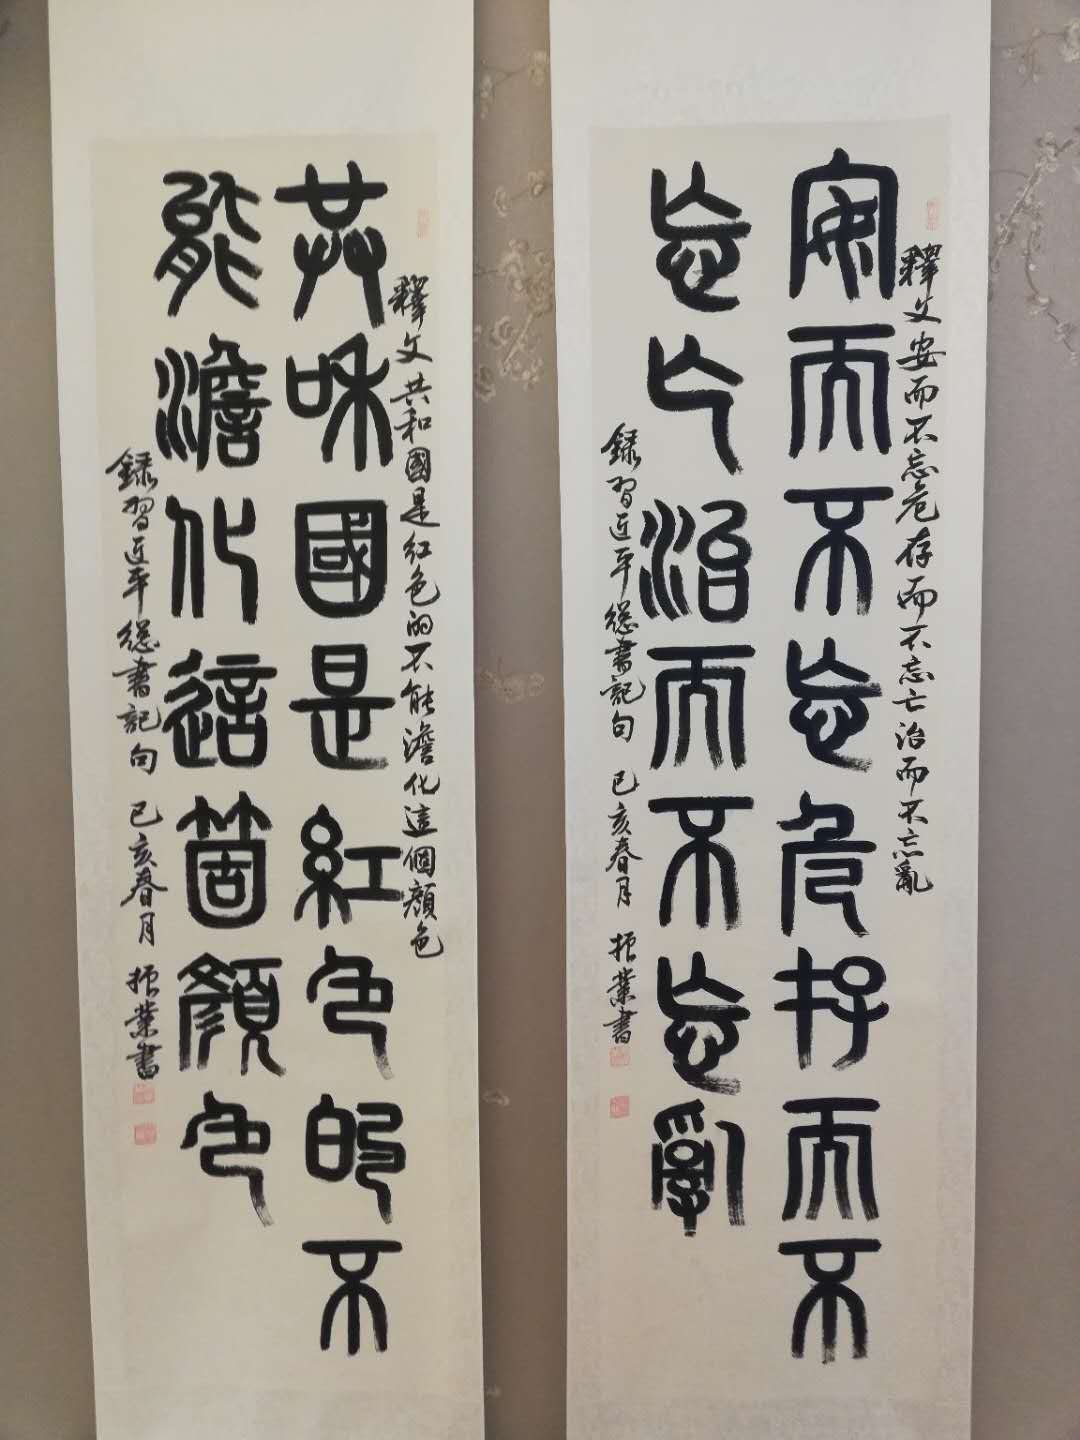 安而不忘危存而不
忘亡治而不忘亂
釋文安而不忘危存而不忘亡治而不忘亂
録習近平總書記句 己亥春月 振業書
共和國是紅色的不
能澹化這箇顏色
釋文共和國是红色的不能澹化這個顏色
録習近平總書記句 己亥春月 振業書